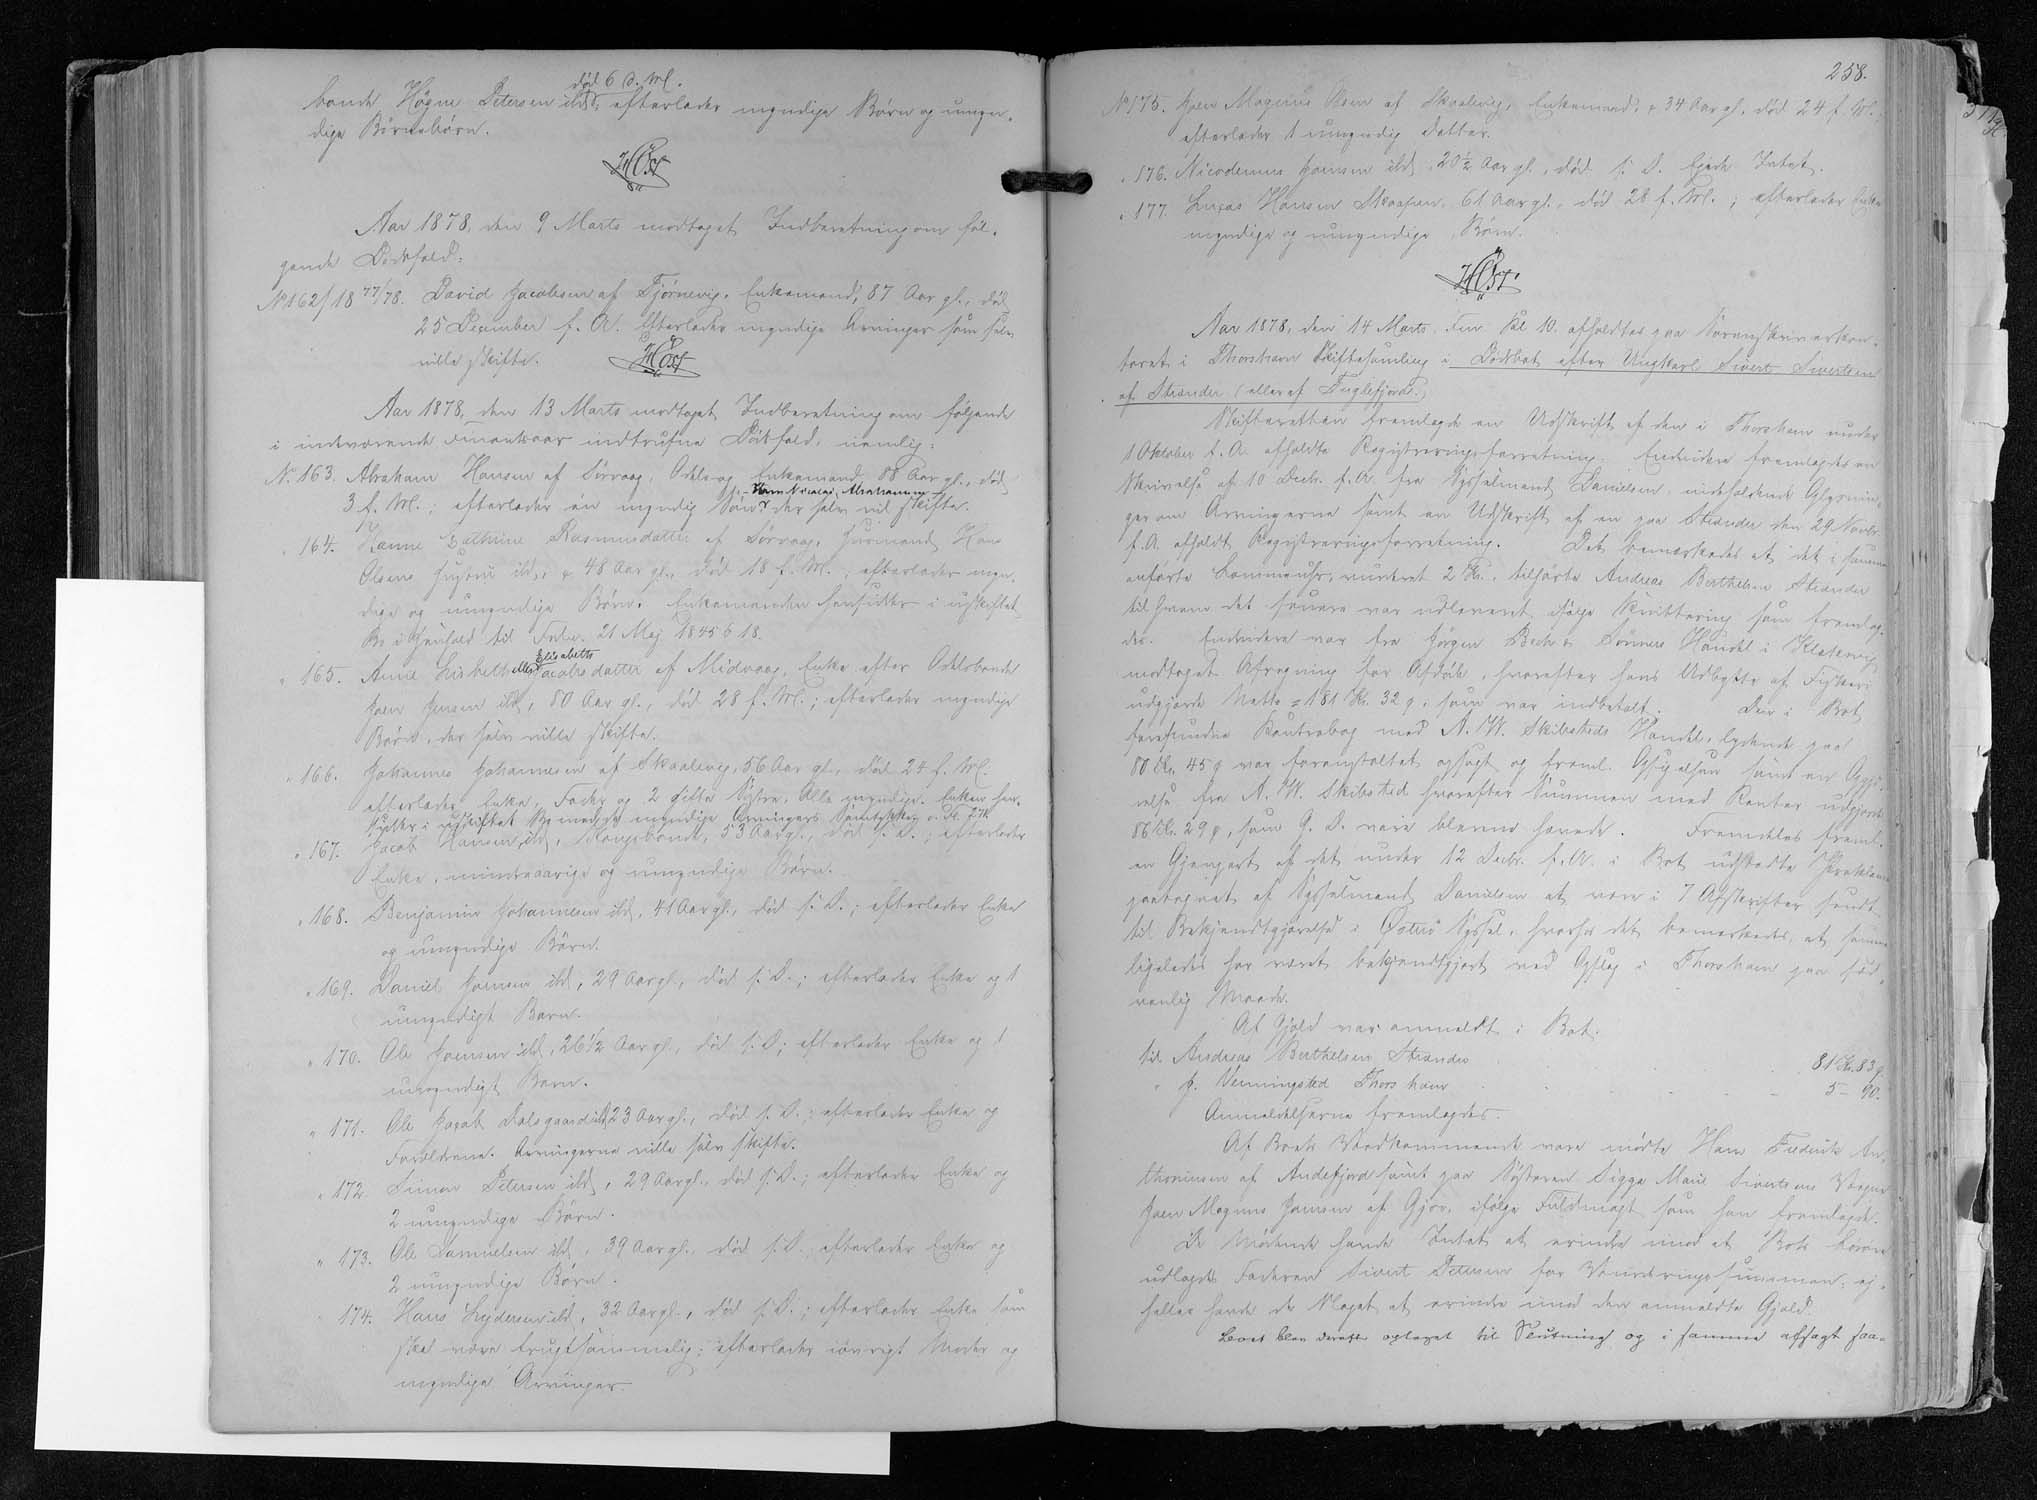 død 6 d. Ml.
bonde Högne Petersen ibd, efterlader myndige Børn og umyn-
dige Børnebørn.
HOst
Aar 1878, den 9 Marts modtoget Indberetning om føl-
gende Dødsfald:
No 162/18 77/78. David Jacobsen af Tjørnevig, Enkemand, 87 Aar gl., død
25 December f. A. Efterlader myndige Arvinger som selv
ville skifte. HOst
Aar 1878, den 13 Marts modtoget Indberetning om følgende
i indeværende Finantsaar indtrufne Dødsfald, nemlig:
No. 163. Abraham Hansen af Sørvaag, Odels- og Enkemand 88 Aar gl., død
Hans Nicolai Abrahamsen
3 f. Ml.; efterlader én myndig Søn der selv vil skifte.
" 164. Hanne Cathrine Rasmusdatter af Sørvaag, Huusmand Hans
Olsens Hustru ibd., 48 Aar gl., død 18 f. Ml.; efterlader myn-
dige og umyndige Børn. Enkemanden hensidder i uskiftet
Bo i Henhold til Frdn. 21 Maj 1845 § 18.
Elisabeth
" 165. Anne Lisbeth eller Jacobsdatter af Midvaag, Enke efter Odelsbonde
Joen Jensen ibd, 80 Aar gl., død 28 f. Ml.; efterlader myndige
Børn, der selv ville skifte.
" 166. Johannes Johannesen af Skaalevig, 56 Aar gl., død 24 f. Ml.
efterlader Enke, Fader og 2 gifte Søstre. Alle myndige. Enken hen-
sidder i uskiftet Bo med de myndige Arvingers Samtykke
" 167. Jacob Hansen, ibd, Kongsbonde, 53 Aar gl., død s. D.; efterlader
Enke, mindreaarige og umyndige Børn.
" 168. Benjamin Johannesen ibd, 41 Aar gl., død s. D.; efterlader Enke
og umyndige Børn.
" 169. Daniel Joensen ibd, 29 Aar gl., død s. D.; efterlader Enke og 1
umyndigt Barn.
" 170. Ole Joensen ibd, 26 1/2 Aar gl., død s. D; efterlader Enke og 1
umyndigt Barn.
" 171. Ole Jacob Dalsgaard ibd 23 Aar gl., død s. D.; efterlader Enke og
Forældrene. Arvingerne ville selv skifte.
" 172. Simon Petersen ibd, 29 Aar gl., død s. D.; efterlader Enke og
2 umyndige Børn.
" 173. Ole Samuelsen ibd, 39 Aar gl., død s. D., efterlader Enke og
2 umyndige Børn.
" 174. Hans Lydersen ibd, 32 Aar gl., død s. D.; efterlader Enke som
skal være frugtsommelig; efterlader iøvrigt Moder og
myndige Arvinger.
258.
No 175. Joen Magnus Olsen af Skaalevig, Enkemand, 34 Aar gl. død 24 f. Ml.;
efterlader 1 umyndig Datter.
" 176. Nicodemus Joensen ibd, 20 1/2 Aar gl., død s. D. Ejede Intet.
" 177. Lucas Hansen Skaapen, 61 Aar gl., død 28 f. Ml.; efterlader Enke
myndige og umyndige Børn.
HOst
Aar 1878, den 14 Marts, Fm. Kl 10. afholdtes paa Sorenskriverkon-
toret i Thorshavn Skiftesamling i Dødsbot efter Ungkarl Sivert Sivertsen
af Strænder (eller af Fuglefjord.)
Skifteretten fremlagde en Udskrift af den i Thorshavn under
1 Oktober f. A. afholdte Registreringsforretning. Endvidere fremlagdes en
Skrivelse af 10 Decbr. f. A. fra Sysselmand Danielsen, indeholdende Oplysnin-
ger om Arvingerne samt en Udskrift af en paa Strænder den 29 Novbr.
f. A. afholdt Registreringsforretning. Det bemærkedes at det i samme
anførte Lommeuhr, vurderet 2 Kr., tilhørte Andreas Berthelsen Strænder
til hvem det senere var udleveret ifølge Kvittering som fremlag-
des. Endvidere var fra Jørgen Bech & Sönners Handel i Klaksvig
modtaget Afregning for Afdøde, hvorefter hans Udbytte af Fiskeri
udgjorde Netto = 181 Kr. 32 ø, som var indbetalt. Den i Bot
forefundne Kontrabog med A. W. Skibsteds Handel, lydende paa
80 Kr. 45 ø var foranstaltet opsagt og freml. Opsigelsen samt en Opgj-
relse fra A. W. Skibsted hvorefter Summen med Renter udgjorde
86 Kr. 29 ø, som G. D. vare blevne hævede. Fremdeles freml.
en Gjenpart af det under 12 Decbr. f. A. i Bot udstedte Proklama
paategnet af Sysselmand Danielsen at være i 7 Afskrifter sendt
til Bekjendtgjørelse i Østerø Syssel, hvorhos det bemærkedes, at samme
ligeledes har været bekjendtgjort ved Opslag i Thorshavn paa sæd-
vanlig Maade.
Af Gjeld var anmeldt i Bot:
til Andreas Berthelsen Strænder 81 Kr. 83 ø
" J. Venningsted Thorshavn 5 - 90.
Anmeldelserne fremlagdes.
Af Boets Vedkommende vare mødte Hans Frederik An-
thoniusen af Andefjord samt paa Søsteren Sigga Marie Sivertsens Vegne
Joen Magnus Joensen af Gjov, ifølge Fuldmagt som han fremlagde.
De Mødende havde Intet at erindre imod at Bots Løsøre
udlagdes Faderen Sivert Petersen for Vurderingssummen; ej-
heller havde de Noget at erindre imod den anmeldte Gjeld.
Boet blev derefter optaget til Slutning og i samme afsagt saa-